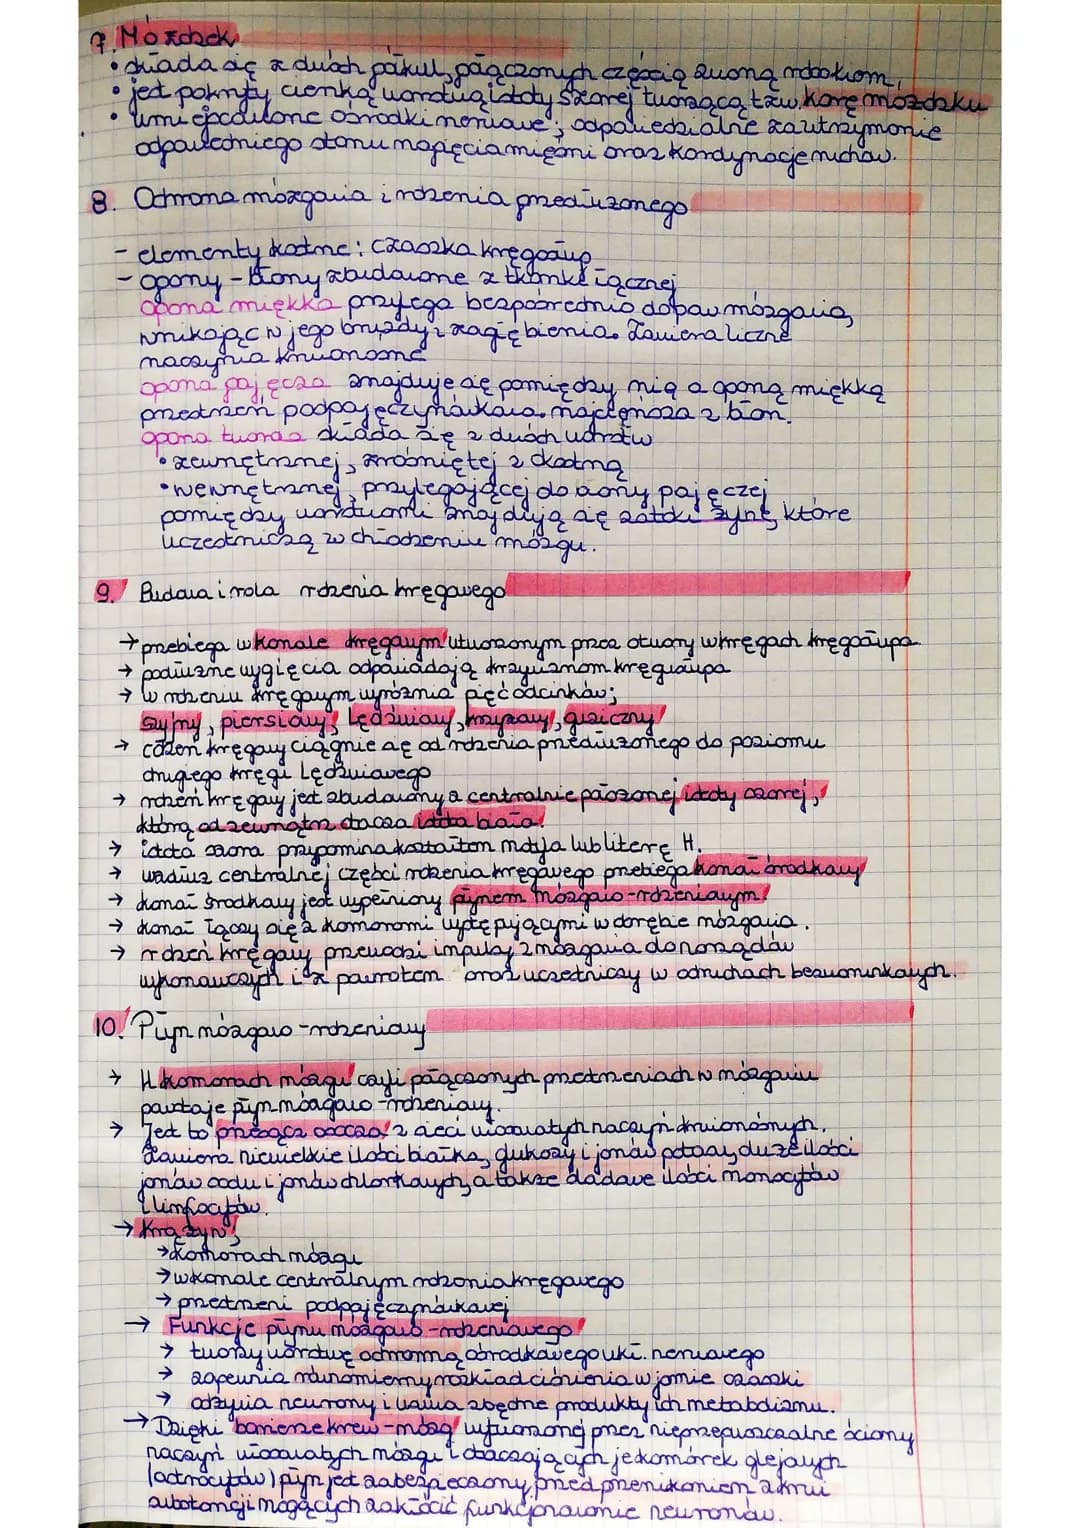 7. Móżdżek
• składa się z dwóch półkul, połączonych częścią zwaną robakiem,
• jest pokryty cienką warstwą istoty szarej tworzącą tzw. korę móżdżku
• umiejscowione ośrodki nerwowe; odpowiedzialne za utrzymanie
odpowiedniego stanu napięcia mięśni oraz kordynację ruchów.
8. Ochrona mózgowia i rdzenia przedłużonego
- elementy kostne: czaszka kręgosłup
- opony - błony zbudowane z tkanki łącznej
opona miękka przylega bezpośrednio do pow mózgowia,
wnikając w jego bruzdy i zagłębienia. Zawiera liczne
naczynia krwionośne
opona pajęcza znajduje się pomiędzy nią a oponą miękką
przestrzeń podpajęczynówkowa. najcieńsza z błon.
opona twarda składa się z dwóch warstw
• zewnętrznej, zrośniętej z kostną
• wewnętrznej, przylegającej do opony pajęczej
pomiędzy warstwami znajdują się zatoki żylne, które
uczestniczą w chłodzeniu mózgu.
9. Budowa i rola rdzenia kręgowego
→ przebiega w kanale kręgowym utworzonym przez otwory w kręgach kręgosłupa
→ podłużne wygięcia odpowiadają krzywiznom kręgosłupa
→ w rdzeniu kręgowym wyróżnia pięć odcinków;
szyjny, piersiowy, lędźwiowy, krzyżowy, guziczny
→ rdzeń kręgowy ciągnie się od rdzenia przedłużonego do poziomu
drugiego kręgu lędźwiowego
→ rdzeń kręgowy jest zbudowany z centralnie położonej istoty szarej,
którą od zewnątrz otacza istota biała.
→ istota szara przypomina kształtem motyla lub literę H.
→ wzdłuż centralnej części rdzenia kręgowego przebiega kanał środkowy
→ kanał środkowy jest wypełniony płynem mózgowo-rdzeniowym
→ kanał łączy się z komorami występującymi w obrębie mózgowia.
→ rdzeń kręgowy przewodzi impulsy z mózgowia do narządów
wykonawczych i z powrotem oraz uczestniczy w odruchach bezwarunkowych.
10. Płyn mózgowo-rdzeniowy
→ W komorach mózgu czyli połączonych przestrzeniach w mózgowiu
powstaje płyn mózgowo-rdzeniowy.
→ Jest to przesącz osocza z sieci włosowatych naczyń krwionośnych.
Zawiera niewielkie ilości białka, glukozy i jonów potasu, duże ilości
jonów sodu i jonów chlorkowych, a także śladowe ilości monocytów
i limfocytów.
→ Krąży w:
→ komorach mózgu
→ w kanale centralnym rdzenia kręgowego
→ przestrzeni podpajęczynówkowej
→ Funkcje płynu mózgowo-rdzeniowego
→ tworzy warstwę ochronną ośrodkowego ukł. nerwowego
→ zapewnia równomierny rozkład ciśnienia w jamie czaszki
→ odżywia neurony i usuwa zbędne produkty ich metabolizmu.
→ Dzięki barierze krew-mózg wytworzonej przez nieprzepuszczalne ściany
naczyń włosowatych mózgu i otaczających je komórek glejowych
(astrocytów) płyn jest zabezpieczony przed przenikaniem z krwi
substancji mogących zakłócić funkcjonowanie neuronów.